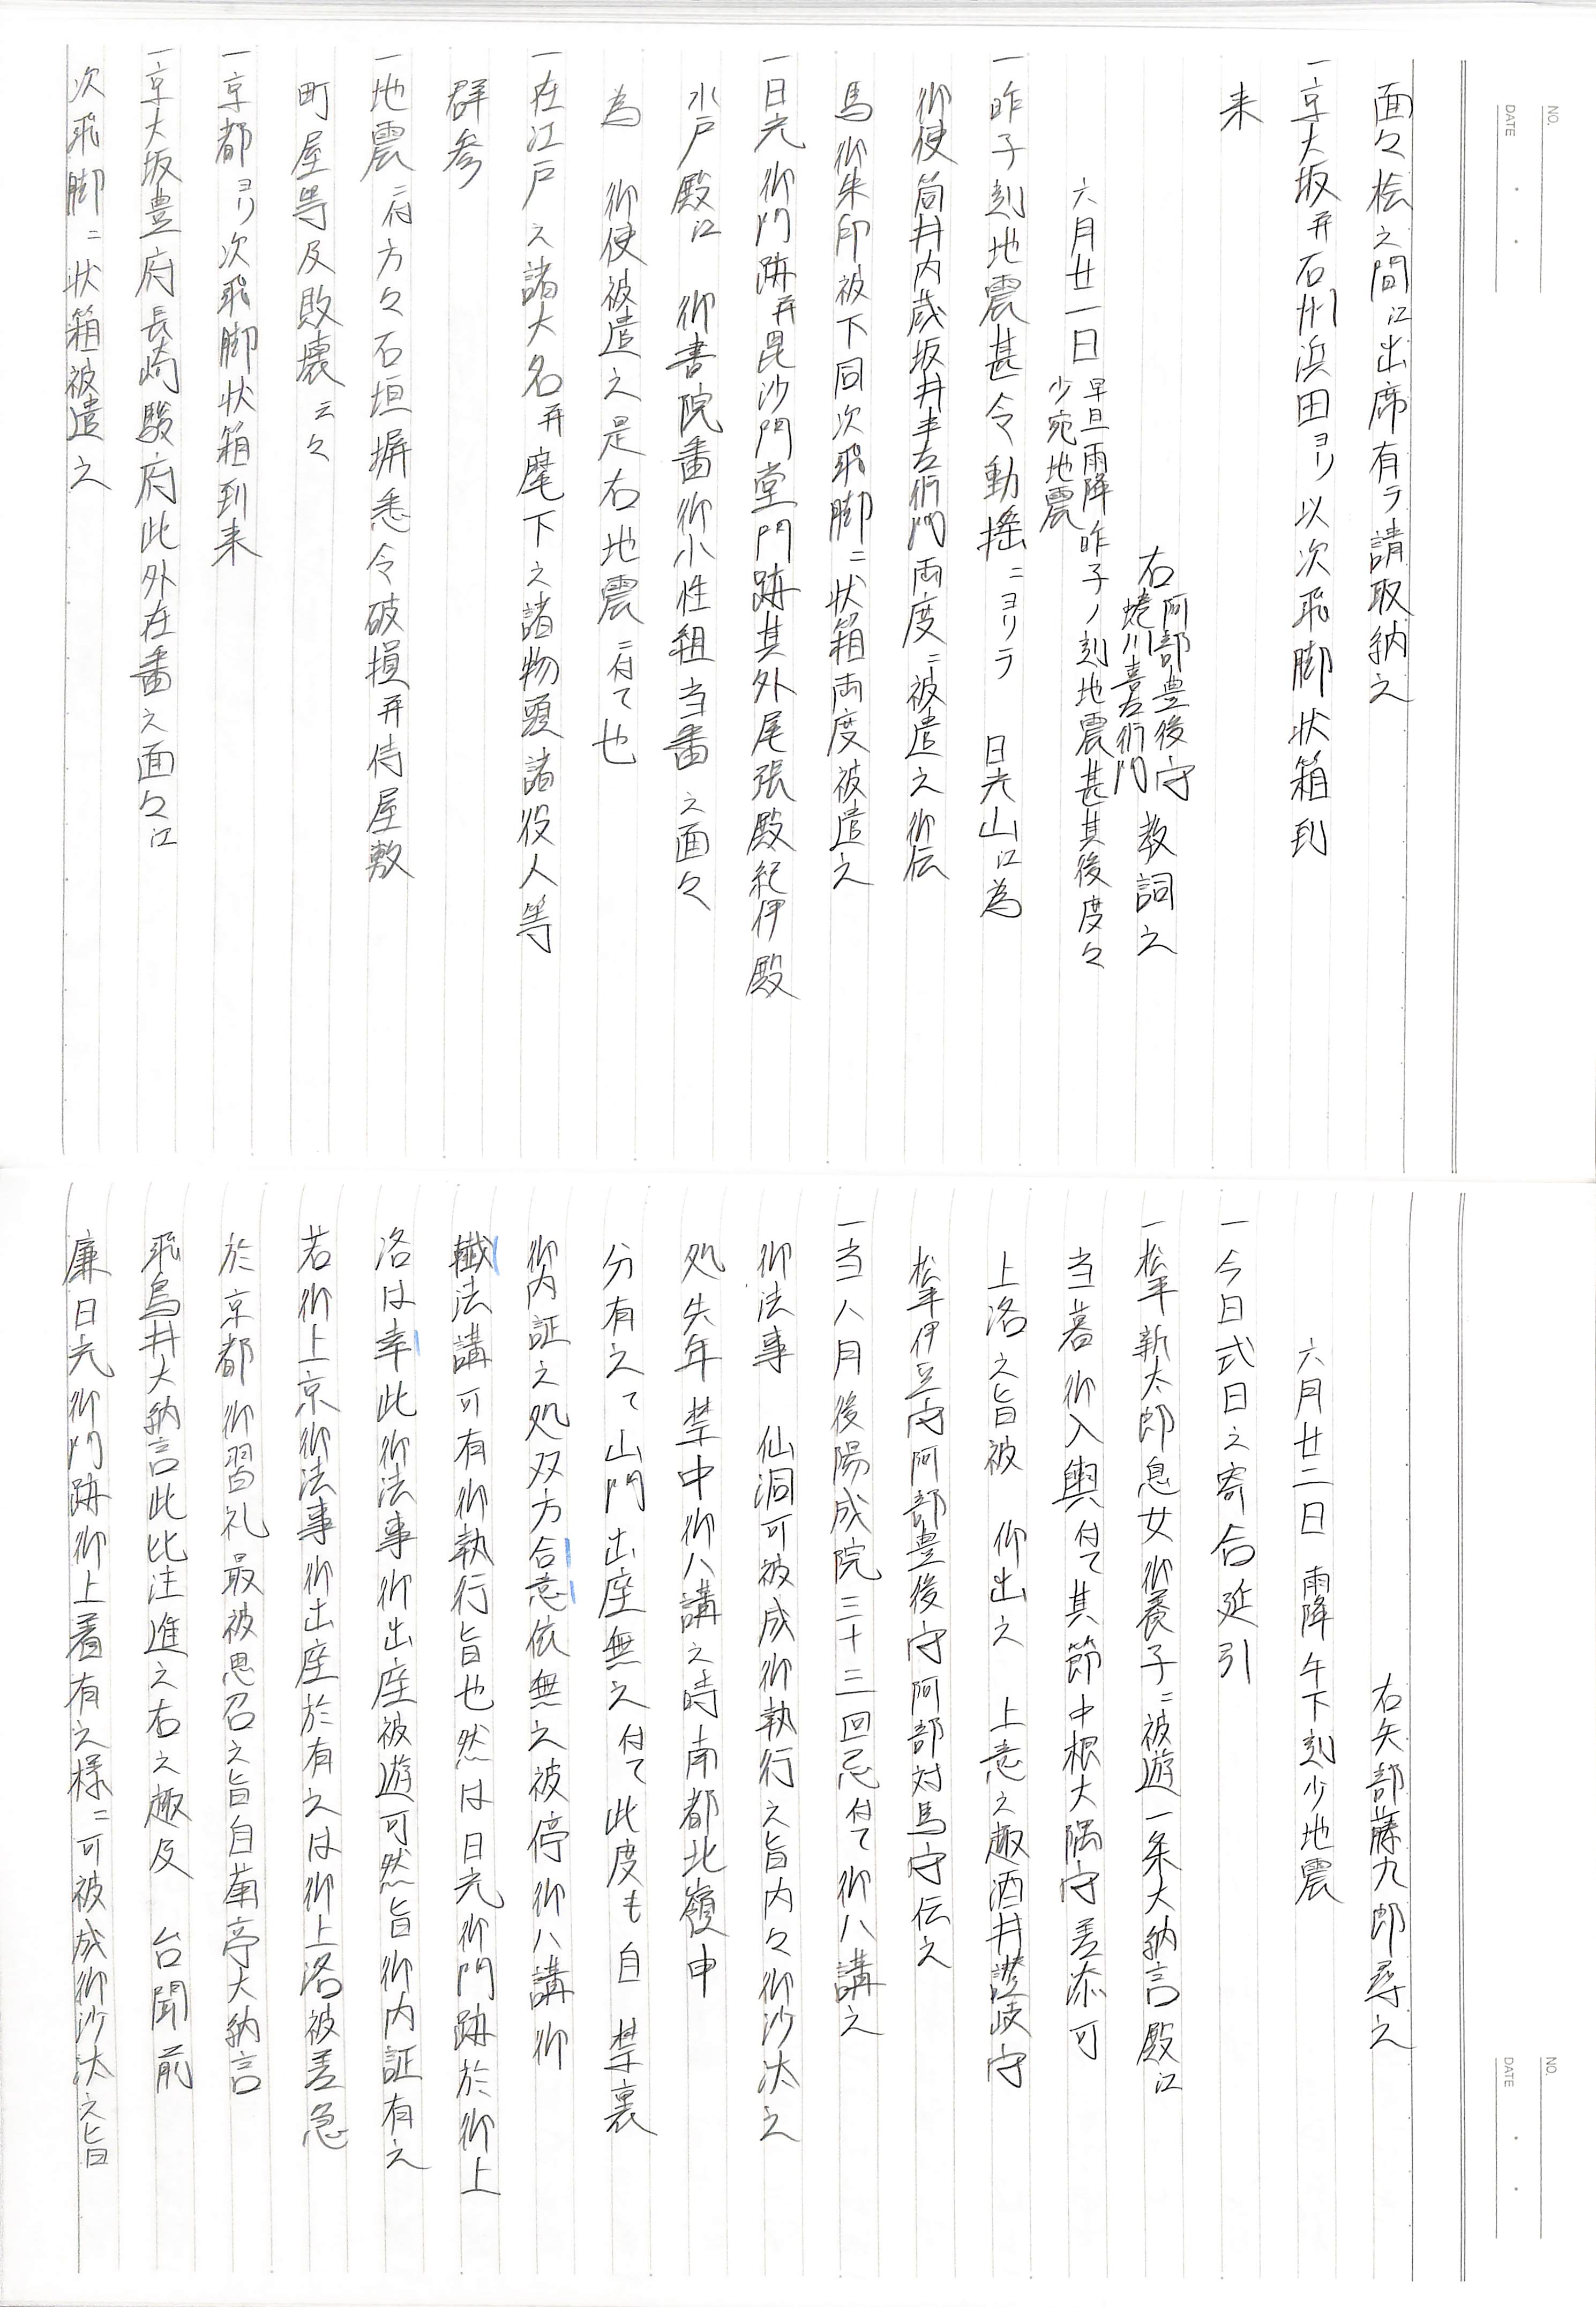 NO.
DATE
面々桧之間江出席有テ請取納之
一京大坂并石州浜田ヨリ以次飛脚状箱到
来
右阿部豊後守
蜷川喜左衛門教詞之
六月廿一日早旦雨降昨子ノ刻地震甚其後度々
少宛地震
一昨子刻地震甚令動揺ニヨリテ 日光山江為
御使筒井内蔵坂井半左衛門両度ニ被遣之御伝
馬御朱印被下同次飛脚ニ状箱両度被遣之
一日光御門跡并毘沙門堂門跡其外尾張殿紀伊殿
水戸殿江 御書院番御小性組当番之面々
為 御使被遣之是右地震ニ付て也
一在江戸之諸大名并麾下之諸物頭諸役人等
群参
一地震ニ付方々石垣塀悉令破損并侍屋敷
町屋等及敗壊云々
一京都ヨリ次飛脚状箱到来
一京大坂豊府長崎駿府此外在番之面々江
次飛脚ニ状箱被遣之
NO.
DATE
右矢部藤九郎尋之
六月廿二日 雨降午下刻少地震
一今日式日之寄合延引
一松平新太郎息女御養子ニ被遊一条大納言殿江
当暮御入輿付て其節中根大隅守差添可
上洛之旨被 仰出之 上意之趣酒井讃岐守
松平伊豆守阿部豊後守阿部対馬守伝之
一当八月後陽成院三十三回忌付て御八講之
御法事 仙洞可被成御執行之旨内々御沙汰之
処先年禁中御八講之時南都北嶺申
分有之て山門出座無之付て此度も自 禁裏
御内証之処双方合意依無之被停御八講御
懴法講可有御執行旨也然は日光御門跡於御上
洛は幸此御法事御出座被遊可然旨御内証有之
若御上京御法事御出座於有之は御上洛被差急
於京都御習礼最被思召之旨自菊亭大納言
飛鳥井大納言此比注進之右之趣及 台聞前
廉日光御門跡御上着有之様ニ可被成御沙汰之旨